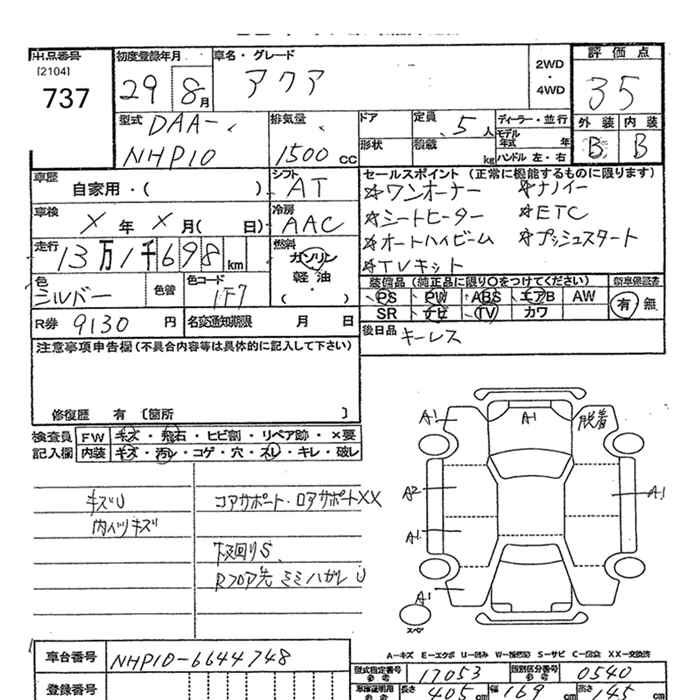 出品番号 初度登録年月 車名・グレード 2WD・4WD 評価点
[2104]
737 29 8月 アクア 35
外装 内装
B B
型式 DAA- 排気量 ドア 定員 5人 ディーラー・並行
NHP10 1500cc 形状 積載 kg モデル年式 年
ハンドル 左・右
車歴 自家用・( ) シフト AT
セールスポイント (正常に機能するものに限ります)
☆ワンオーナー ☆ナノイー
☆シートヒーター ☆ETC
☆オートハイビーム ☆プッシュスタート
☆TVキット
車検 X年 X月( 日) 冷房 AAC
走行 13万1千698km 燃料 ガソリン
軽油
・( )
色 シルバー 色替 色コード 1F7
装備品 (純正品に限り○をつけてください) 新車保証書
PS PW ABS エアB AW 有 無
SR ナビ TV カワ
R券 9130円 名変通知期限 月 日
後日品 キーレス
注意事項申告欄 (不具合内容等は具体的に記入して下さい)
修復歴 有 [箇所 ]
検査員 FW キズ・飛石・ヒビ割・リペア跡・×要
記入欄 内装 キズ・汚レ・コゲ・穴・スレ・キレ・破レ
キズU コアサポート・ロアサポートXX
内イツキズ
下回りS
Rフロア先ミミハガレU
A1 A1 脱着
A2 A1
A1
A1
スペア
A-キズ E-エクボ U-凹み W-補修跡 S-サビ C-腐食 XX-交換済
車台番号 NHP10-6644748
型式指定番号 参考 17053 類別区分番号 参考 0540
登録番号
車庫証明用 参考 長さ 405cm 幅 169cm 高さ 145cm